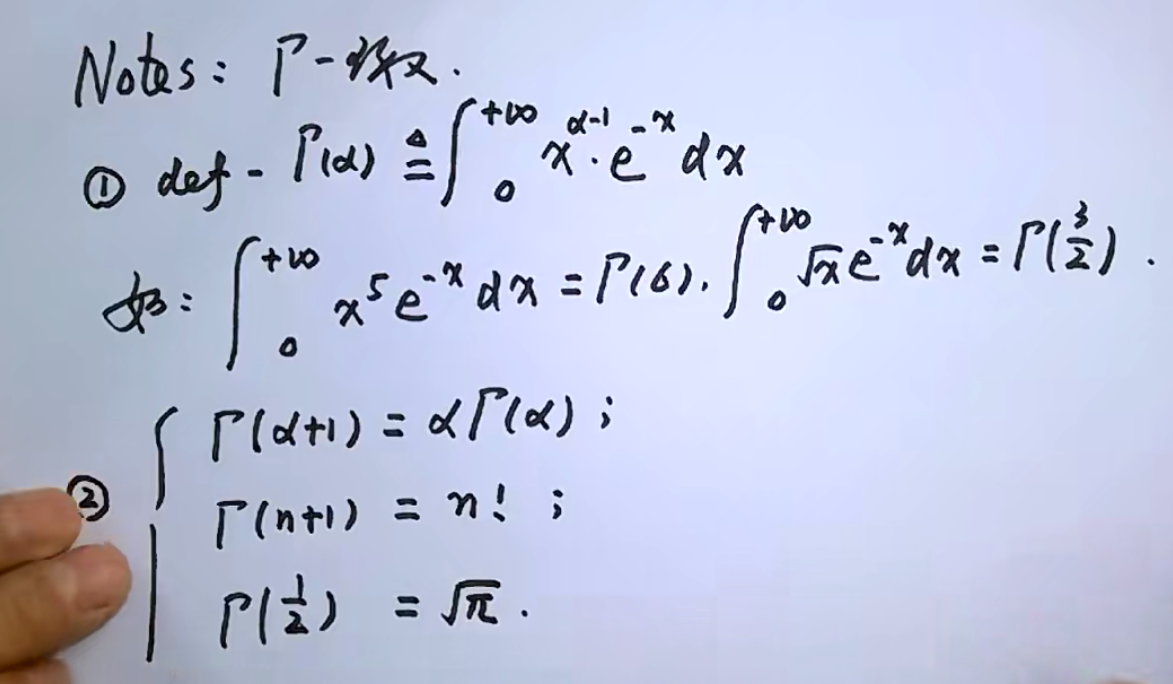 Notes: Γ-函数.
① def - Γ(α) ≜ ∫₀^{+∞} x^{α-1}·e^{-x} dx
如: ∫₀^{+∞} x⁵ e^{-x} dx = Γ(6). ∫₀^{+∞} √x e^{-x} dx = Γ(3/2).
② { Γ(α+1) = αΓ(α) ;
Γ(n+1) = n! ;
Γ(1/2) = √π.